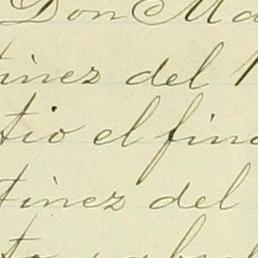 Don Ma
tinez del
tio el fin
tinez del